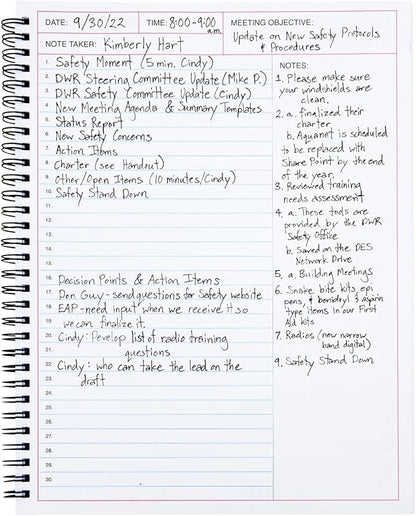 DATE: 9/30/22 TIME: 8:00-9:00 a.m. MEETING OBJECTIVE:
NOTE TAKER: Kimberly Hart
Update on New Safety Protocols
& Procedures
1. Safety Moment (5 min. Cindy)
2. DWR Steering Committee Update (Mike P.)
3. DWR Safety Committee Update (Cindy)
4. New Meeting Agenda & Summary Templates
5. Status Report
6. New Safety Concerns
7. Action Items
8. Charter (see Handout)
9. Other/Open Items (10 minutes/Cindy)
10. Safety Stand Down
11.
12.
13.
14.
15.
16. Decision Points & Action Items
17. Don Guy-send questions for Safety website
18. EAP-need input when we receive it so
19. we can finalize it.
20. Cindy: Develop list of radio training
21. questions
22. Cindy: who can take the lead on the
23. draft
24.
25.
26.
27.
28.
29.
30.
NOTES:
1. Please make sure
your windshields are
clean.
2. a. finalized their
charter
b. Aquanet is scheduled
to be replaced with
Share Point by the end
of the year.
3. Reviewed training
needs assessment
4. a. These tods are
provided by the DWR
Safety Office
b. Saved on the DES
Network Drive
5. a. Building Meetings
6. Snake bite kits, epi
pens, & benidryl & aspirin
type items in our First
Aid kits
7. Radios (new narrow
band digital)
9. Safety Stand Down